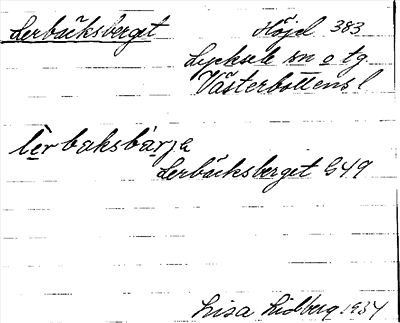 Lerbäcksberget Höjd 383
Lycksele sn o tg.
Västerbottens l
lèrbaksbàrja
Lerbäcksberget G49
Lisa Lidberg 1934